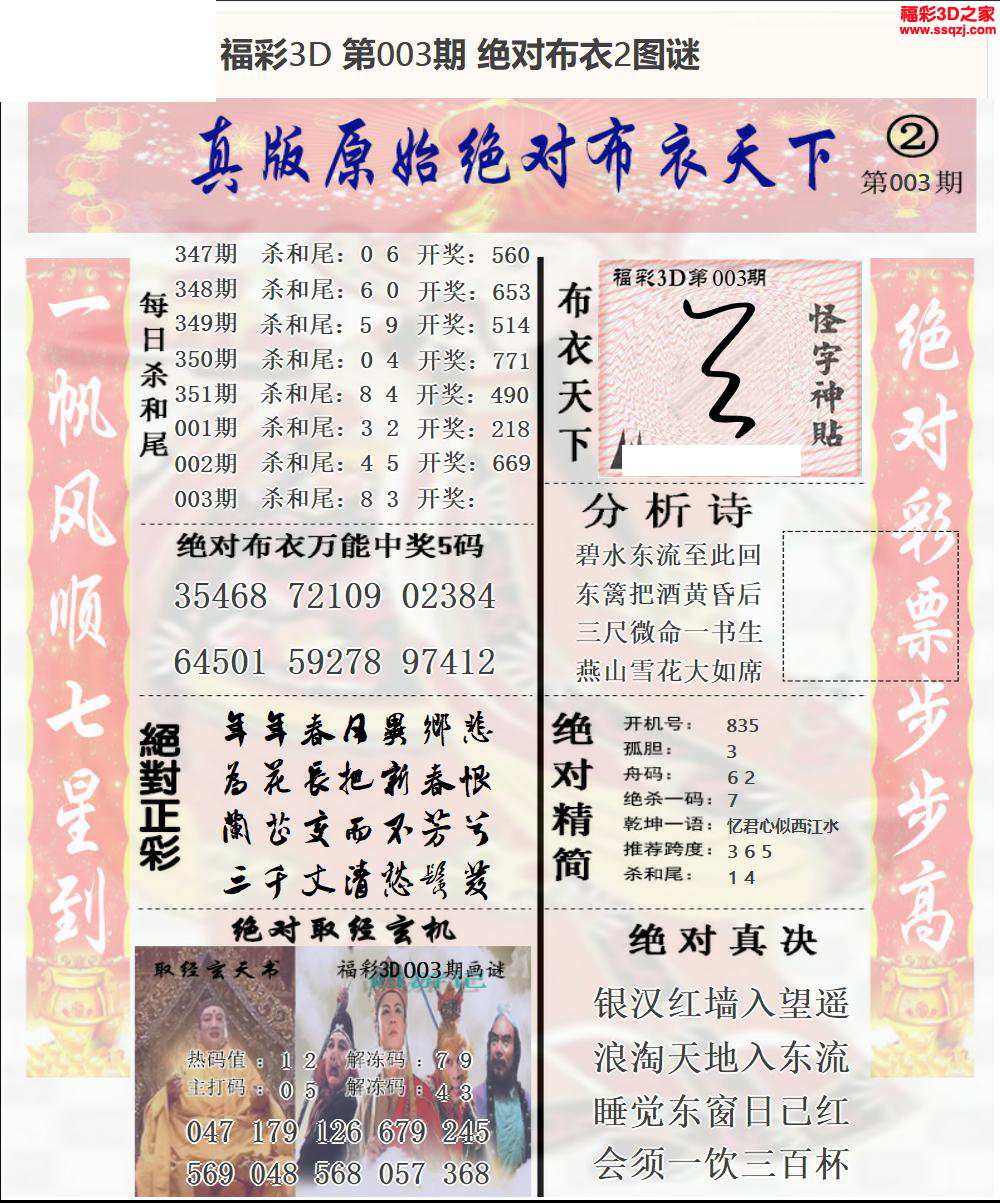 福彩3D之家
www.ssqzj.com
福彩3D 第003期 绝对布衣2图谜
真版原始绝对布衣天下
②
第003期
一帆风顺七星到
每日杀和尾
347期 杀和尾：0 6 开奖：560
348期 杀和尾：6 0 开奖：653
349期 杀和尾：5 9 开奖：514
350期 杀和尾：0 4 开奖：771
351期 杀和尾：8 4 开奖：490
001期 杀和尾：3 2 开奖：218
002期 杀和尾：4 5 开奖：669
003期 杀和尾：8 3 开奖：
绝对布衣万能中奖5码
35468 72109 02384
64501 59278 97412
絕對正彩
年年春日異鄉悲
为花長把新春恨
蘭芷变而不芳兮
三千丈清愁鬓发
绝对取经玄机
取经玄天书
福彩3D003期画谜
热码值：1 2 解冻码：7 9
主打码：0 5 解冻码：4 3
047 179 126 679 245
569 048 568 057 368
布衣天下
福彩3D第003期
怪字神貼
分析诗
碧水东流至此回
东篱把酒黄昏后
三尺微命一书生
燕山雪花大如席
绝对精简
开机号：835
孤胆：3
舟码：6 2
绝杀一码：7
乾坤一语：忆君心似西江水
推荐跨度：3 6 5
杀和尾：1 4
绝对真决
银汉红墙入望遥
浪淘天地入东流
睡觉东窗日己红
会须一饮三百杯
绝对彩票步步高